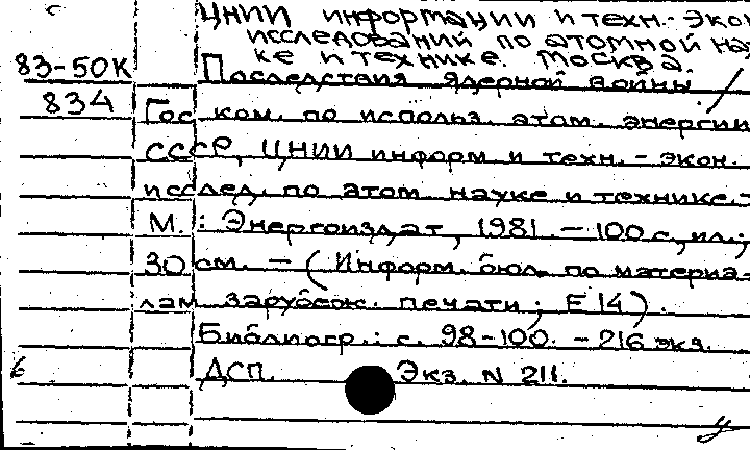 ЦНИИ информации и техн.-экон
исследований по атомной нау
ке и технике. Москва.
83-50К Последствия ядерной войны /
834 Гос ком. по использ. атом. энергии
СССР, ЦНИИ информ и техн. - экон.
исслед. по атом науке и технике. -
М. : Энергоиздат, 1981. - 100 с., ил.;
30 см. - (Информ. бюл. по материа-
лам зарубеж. печати; Е 14).
Библиогр.: с. 98-100. - 216 экз.
ДСП. Экз. N 211.